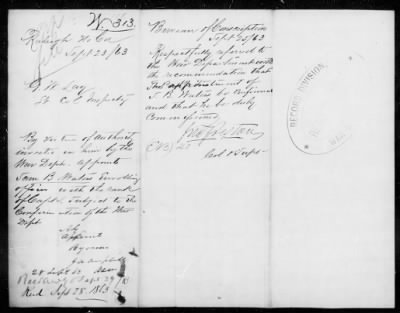 W. 313,
Raleigh N. Ca
Sept 23/63
G. W. Lay
Lt. Col Inspector
By virtue of authority
invested in him by the
War Dept. appoints
Sam B. Waters Enrolling
officer with the rank
of Capt. Subject to the
Confirmation of the War
Dept.
Appoint
By order
J A Campbell
28 Sept 63
Sept 29/63
Recd Sept 28. 1863
Bureau of Conscription
Sept 25/63
Respectfully referred to
the War Department with
the recommendation that
the appointment of
S B Waters be confirmed
and that he be duly
Commissioned
Jno. S. Preston
Col & Supt
RECORD DIVISION,
WAR